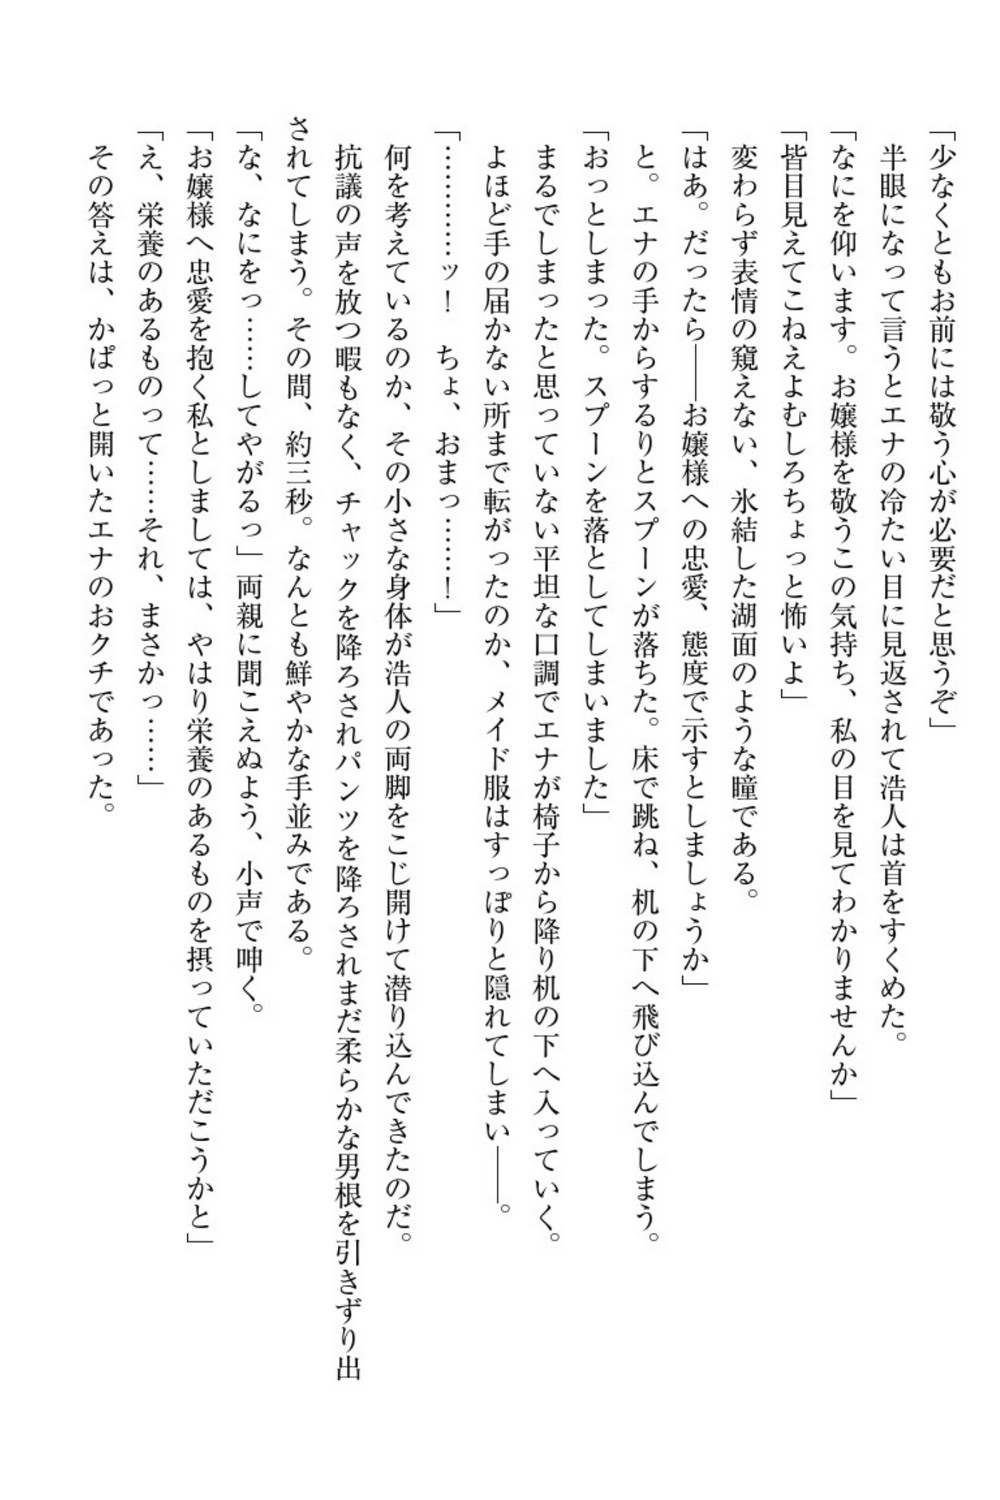 「少なくともお前には敬う心が必要だと思うぞ」
半眼になって言うとエナの冷たい目に見返されて浩人は首をすくめた。
「なにを仰います。お嬢様を敬うこの気持ち、私の目を見てわかりませんか」
「皆目見えてこねえよむしろちょっと怖いよ」
変わらず表情の窺えない、氷結した湖面のような瞳である。
「はあ。だったら――お嬢様への忠愛、態度で示すとしましょうか」
と。エナの手からするりとスプーンが落ちた。床で跳ね、机の下へ飛び込んでしまう。
「おっとしまった。スプーンを落としてしまいました」
まるでしまったと思っていない平坦な口調でエナが椅子から降り机の下へ入っていく。
よほど手の届かない所まで転がったのか、メイド服はすっぽりと隠れてしまい――。
「…………ッ！　ちょ、おまっ……！」
何を考えているのか、その小さな身体が浩人の両脚をこじ開けて潜り込んできたのだ。
抗議の声を放つ暇もなく、チャックを降ろされパンツを降ろされまだ柔らかな男根を引きずり出
されてしまう。その間、約三秒。なんとも鮮やかな手並みである。
「な、なにをっ……してやがるっ」両親に聞こえぬよう、小声で呻く。
「お嬢様へ忠愛を抱く私としましては、やはり栄養のあるものを摂っていただこうかと」
「え、栄養のあるものって……それ、まさかっ……」
その答えは、かぱっと開いたエナのおクチであった。